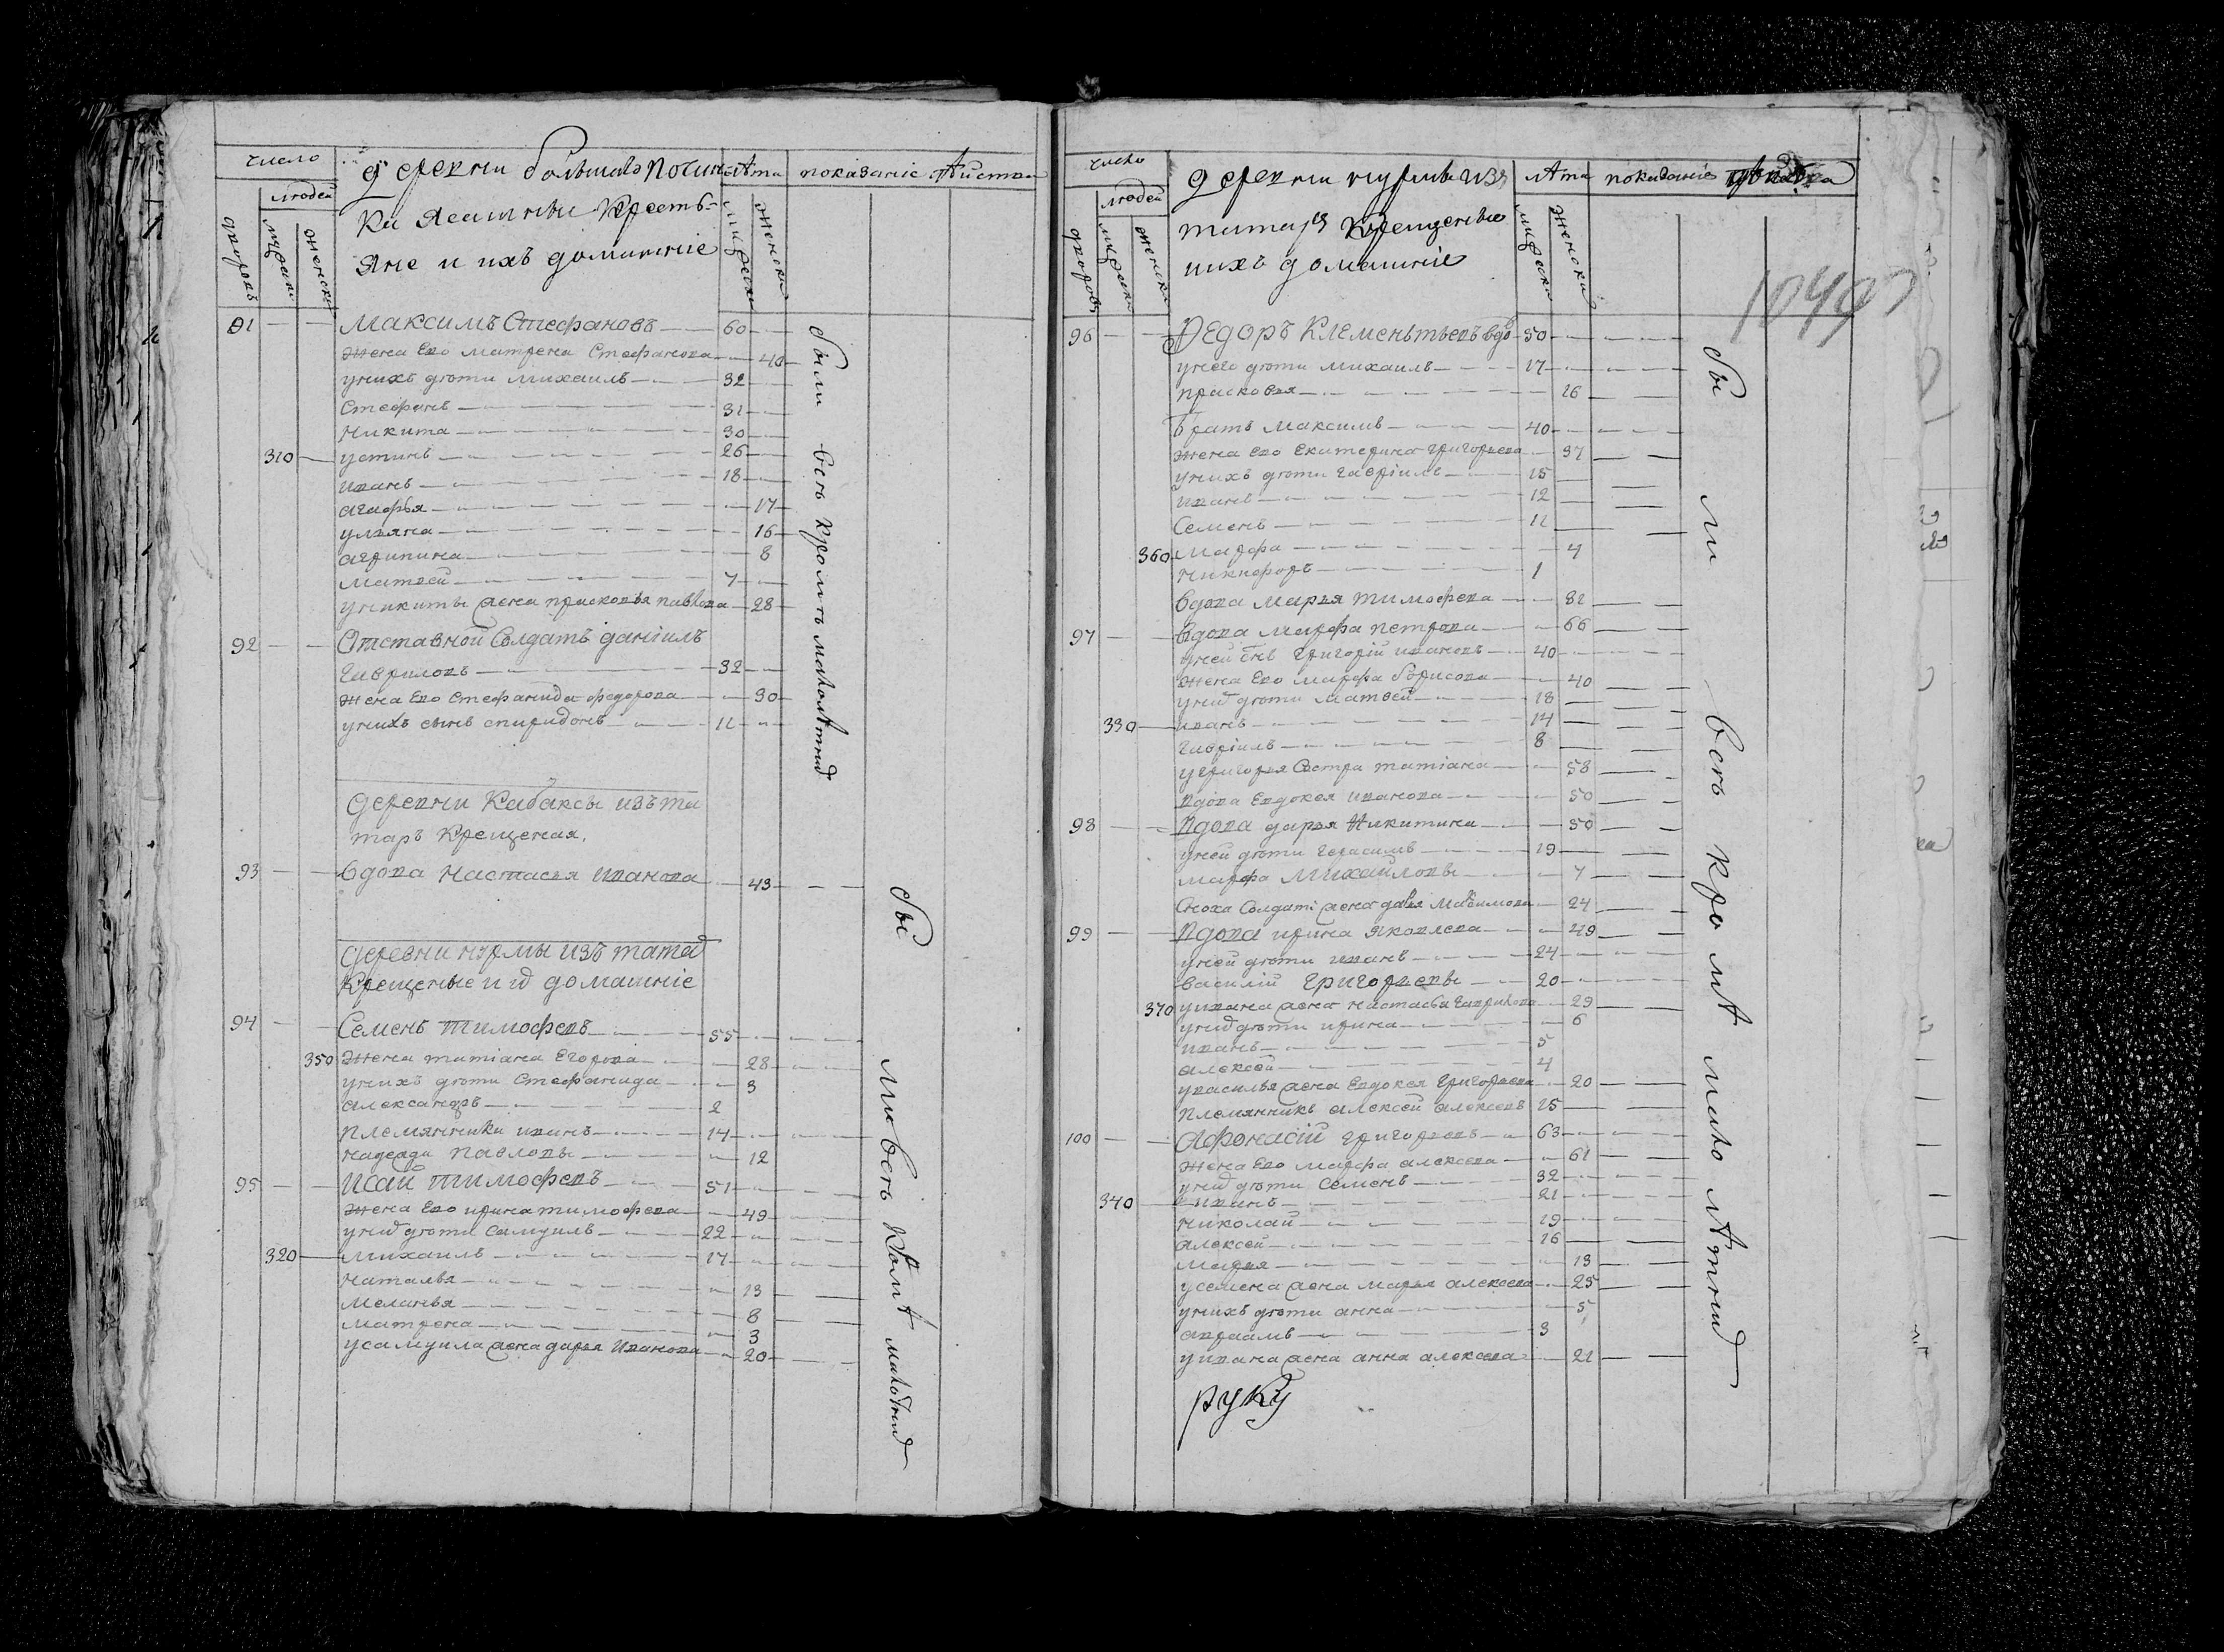 число
людей
дворовъ
мужеска
женска
деревни большаго почин-
ки ясашныи кресть-
яне и ихъ домашніе
лѣта
мужеска
женска
показаніе дѣйства
91 Максимъ Стефановъ 60
жена ево матрена Стефанова 40
унихъ дѣти михаилъ 32
Стефанъ 31
никита 30
310 устинъ 26
иванъ 18
агафья 17
ульяна 16
агрипина 8
матвей 7
уникиты жена прасковья павлова 28
92 Отставной Солдатъ даніилъ
гавриловъ 32
жена ево Стефанида федорова 30
унихъ сынъ спиридонъ 11
были всѣ кромѣ малолѣтныхъ
деревни Кабаксы изъ та
таръ Крещеная.
93 вдова настасья иванова 43
деревни нурмы изъ татар
Крещеные и их домашніе
94 Семенъ тимофеевъ 55
350 жена татіана егорова 28
унихъ дѣти Стефанида 3
александръ 2
племянники иванъ 14
надежда павловы 12
95 Исай тимофеевъ 51
жена ево ирина тимофеева 49
уних дѣти самуилъ 22
320 михаилъ 17
наталья 13
меланья 8
матрена 3
усамуила жена дарья иванова 20
бы ли всѣ кромѣ малолѣтных
число
людей
дворовъ
мужеска
женска
деревни нурмы изъ
татаръ Крещеные
иихъ домашніе
лѣта
мужеска
женска
показаніе
1040
96 Федоръ Клементьевъ вдо 50
унего дѣти михаилъ 17
прасковья 16
братъ максимъ 40
жена ево екатерина григорьева 37
унихъ дѣти гавріилъ 15
иванъ 12
Семенъ 11
360 марфа 4
никифоръ 1
вдова марья тимофеева 81
97 вдова марфа петрова 66
уней снъ григорій ивановъ 40
жена ево марфа борисова 40
уних дѣти матвей 18
330 иванъ 14
гавріилъ 8
угригорья сестра татіана 58
вдова евдокея иванова 50
98 вдова дарья никитина 50
уней дѣти герасимъ 19
марфа михайловы 7
Сноха Солдатс жена 24
99 вдова ирина яковлева 49
уней дѣти иванъ 24
василій григорьевы 20
370 уивана жена настасья гаврилова 29
уних дѣти ирина 6
иванъ 5
алексей 4
увасилья жена евдокея григорьева 20
племянникъ алексей алексеевъ 15
100 Афонасій григорьевъ 63
жена ево марфа алексеева 61
уних дѣти семенъ 32
340 иванъ 21
николай 19
алексей 16
марья 13
усемена жена марья алексеева 25
унихъ дѣти анна 5
авраамъ 3
уивана жена анна алексеева 21
бы ли всѣ кро мѣ мало лѣтных
руку